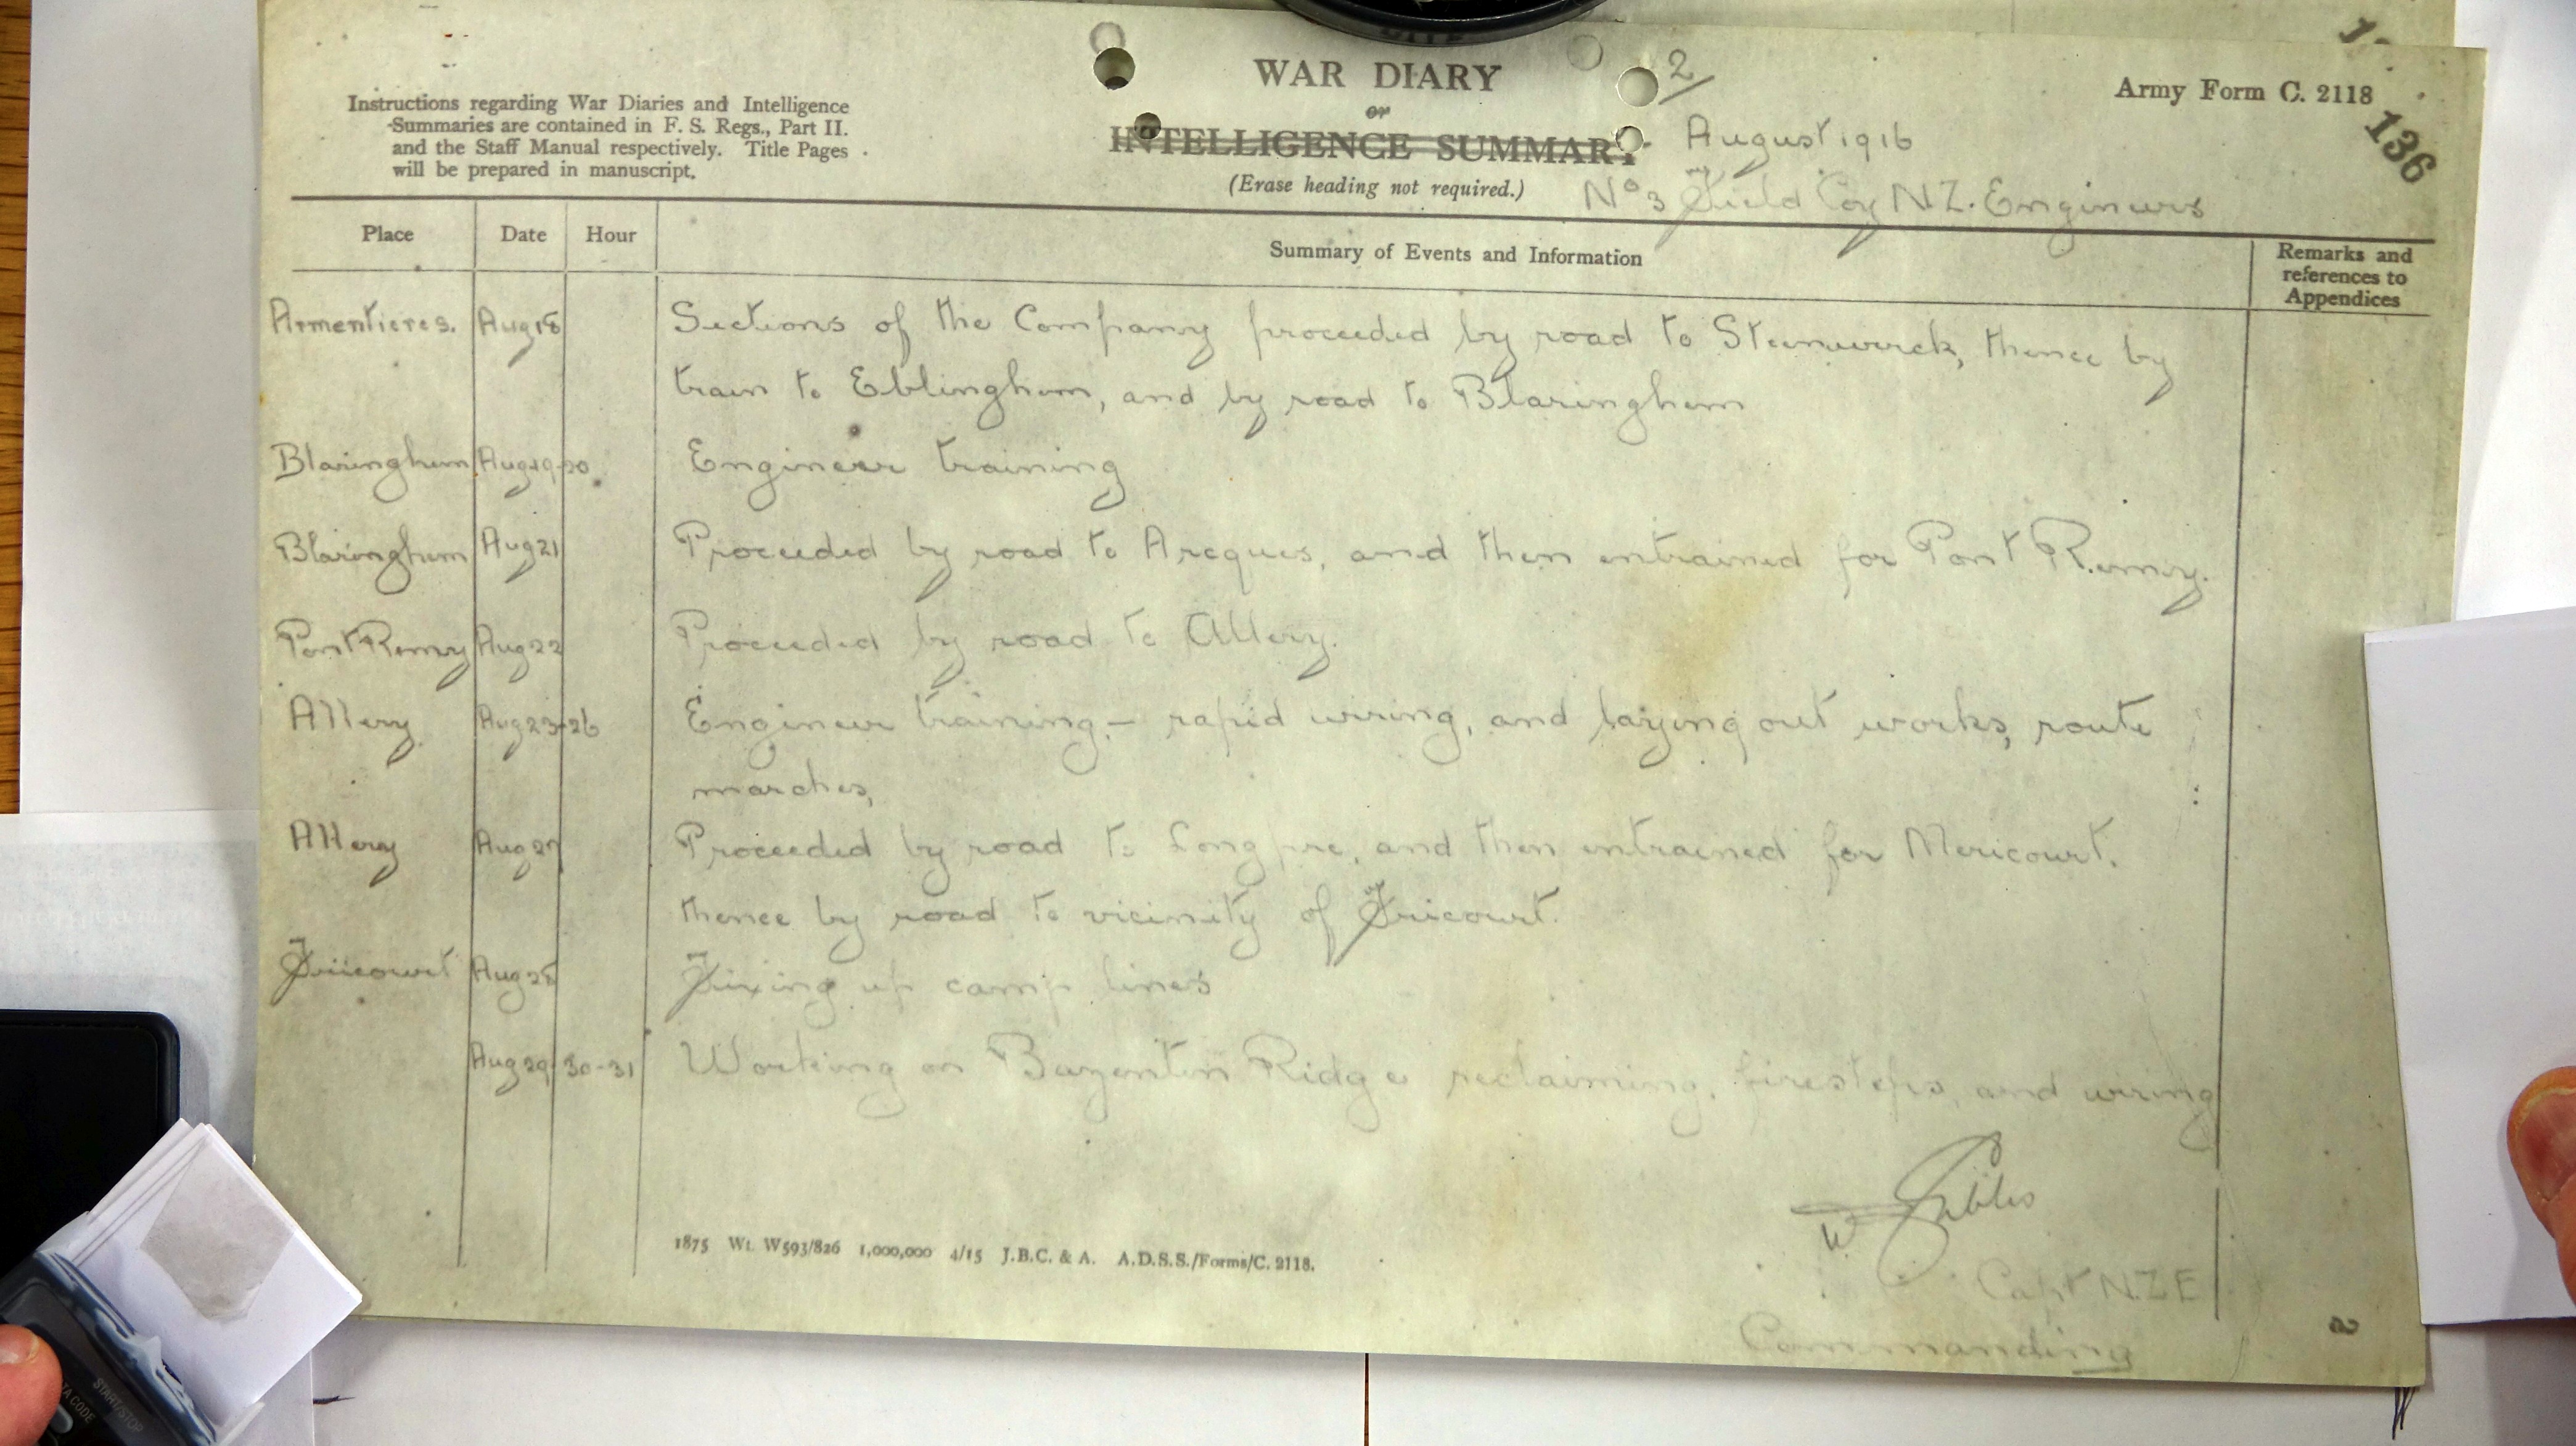 Instructions regarding War Diaries and Intelligence
Summaries are contained in F. S. Regs., Part II.
and the Staff Manual respectively. Title Pages
will be prepared in manuscript.
WAR DIARY
or
INTELLIGENCE SUMMARY
(Erase heading not required.)
2/
August 1916
No 3 Field Coy N.Z. Engineers
Army Form C. 2118
136
Place Date Hour Summary of Events and Information Remarks and
references to
Appendices
Armentieres. Aug 18 Sections of the Company proceeded by road to Steenwerck, thence by
train to Eblinghem, and by road to Blaringhem
Blaringhem Aug 19-20 Engineer training
Blaringhem Aug 21 Proceeded by road to Arcques, and then entrained for Pont Remy.
Pont Remy Aug 22 Proceeded by road to Allery.
Allery Aug 23-26 Engineer training,- rapid wiring, and laying out works, route
marches,
Allery Aug 27 Proceeded by road to Longpre, and then entrained for Mericourt.
thence by road to vicinity of Fricourt.
Fricourt Aug 28 Fixing up camp lines
Aug 29 30-31 Working on Bazentin Ridge reclaiming, firesteps, and wiring
W
Capt N.Z.E
Commanding
1875 Wt. W593/826 1,000,000 4/15 J.B.C. & A. A.D.S.S./Forms/C. 2118.
START/STOP